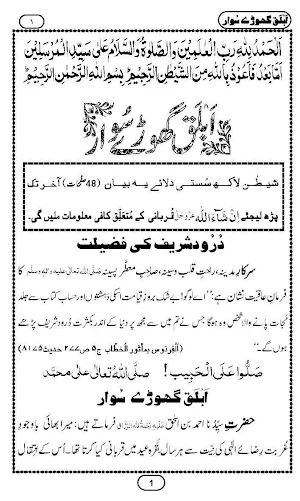 ابلق گھوڑے سُوار
۱
اَلْحَمْدُ لِلّٰہِ رَبِّ الْعٰلَمِیْنَ وَالصَّلٰوۃُ وَالسَّلَامُ عَلٰی سَیِّدِ الْمُرْسَلِیْنَ
اَمَّا بَعْدُ فَاَعُوْذُ بِاللّٰہِ مِنَ الشَّیْطٰنِ الرَّجِیْمِ بِسْمِ اللّٰہِ الرَّحْمٰنِ الرَّحِیْمِ
اَبلَق گھوڑے سُوار
شیطٰن لاکھ سُستی دلائے یہ بیان (48 صفحات) آخر تک
پڑھ لیجئے اِنْ شَآءَاللّٰہ عَزَّوَجَلَّ قُربانی کے مُتَعَلِّق کافی معلومات ملیں گی۔
دُرُود شریف کی فضیلت
سرکارِ مدینہ، راحتِ قلب وسینہ، صاحِبِ معطّر پسینہ صَلَّی اللہُ تعالیٰ علیہ واٰلہٖ وسلَّم کا
فرمانِ عافیت نشان ہے: ’’اے لوگو! بے شک بروزِ قِیامت اسکی دَہشتوں اور حساب کتاب سے جلد
نَجات پانے والا شخص وہ ہوگا جس نے تم میں سے مجھ پر دنیا کے اندر بکثرت دُرُود شریف پڑھے
ہوں گے۔‘‘ (اَلْفِردَوس بمأثور الْخطّاب ج۵ ص۲۷۷ حدیث۸۱۷۵)
صَلُّوْا عَلَی الْحَبِیب! صلَّی اللّٰہُ تعالیٰ علیٰ محمَّد
اَبلَق گھوڑے سُوار
حضرتِ سیِّدُنا احمد بن اسحٰق علیہ رَحمَۃُ اللہِ الرَّزَّاق فرماتے ہیں: میرا بھائی باوُجُودِ
غُربت رِضائے الٰہی کی نیّت سے ہر سال بَقَرہ عید میں قُربانی کیا کرتا تھا۔ اُس کے اِنتِقال
1